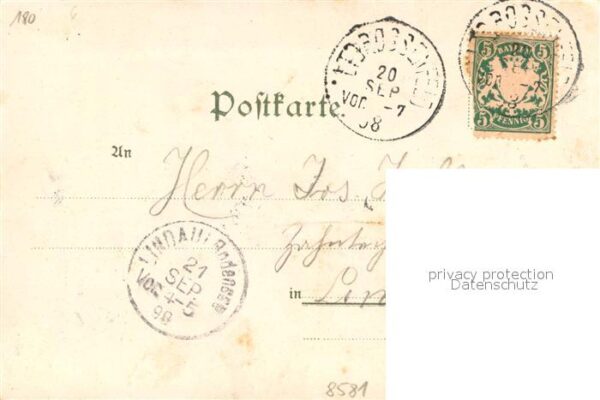 180
20
SEP
VOR. -7
98
5 BAYERN 5
5 PFENNIG 5
Postkarte
An
Herrn Jos.
LINDAU i/Bodensee
21
SEP
VOR. 4-5
98
in Lin
privacy protection
Datenschutz
8581